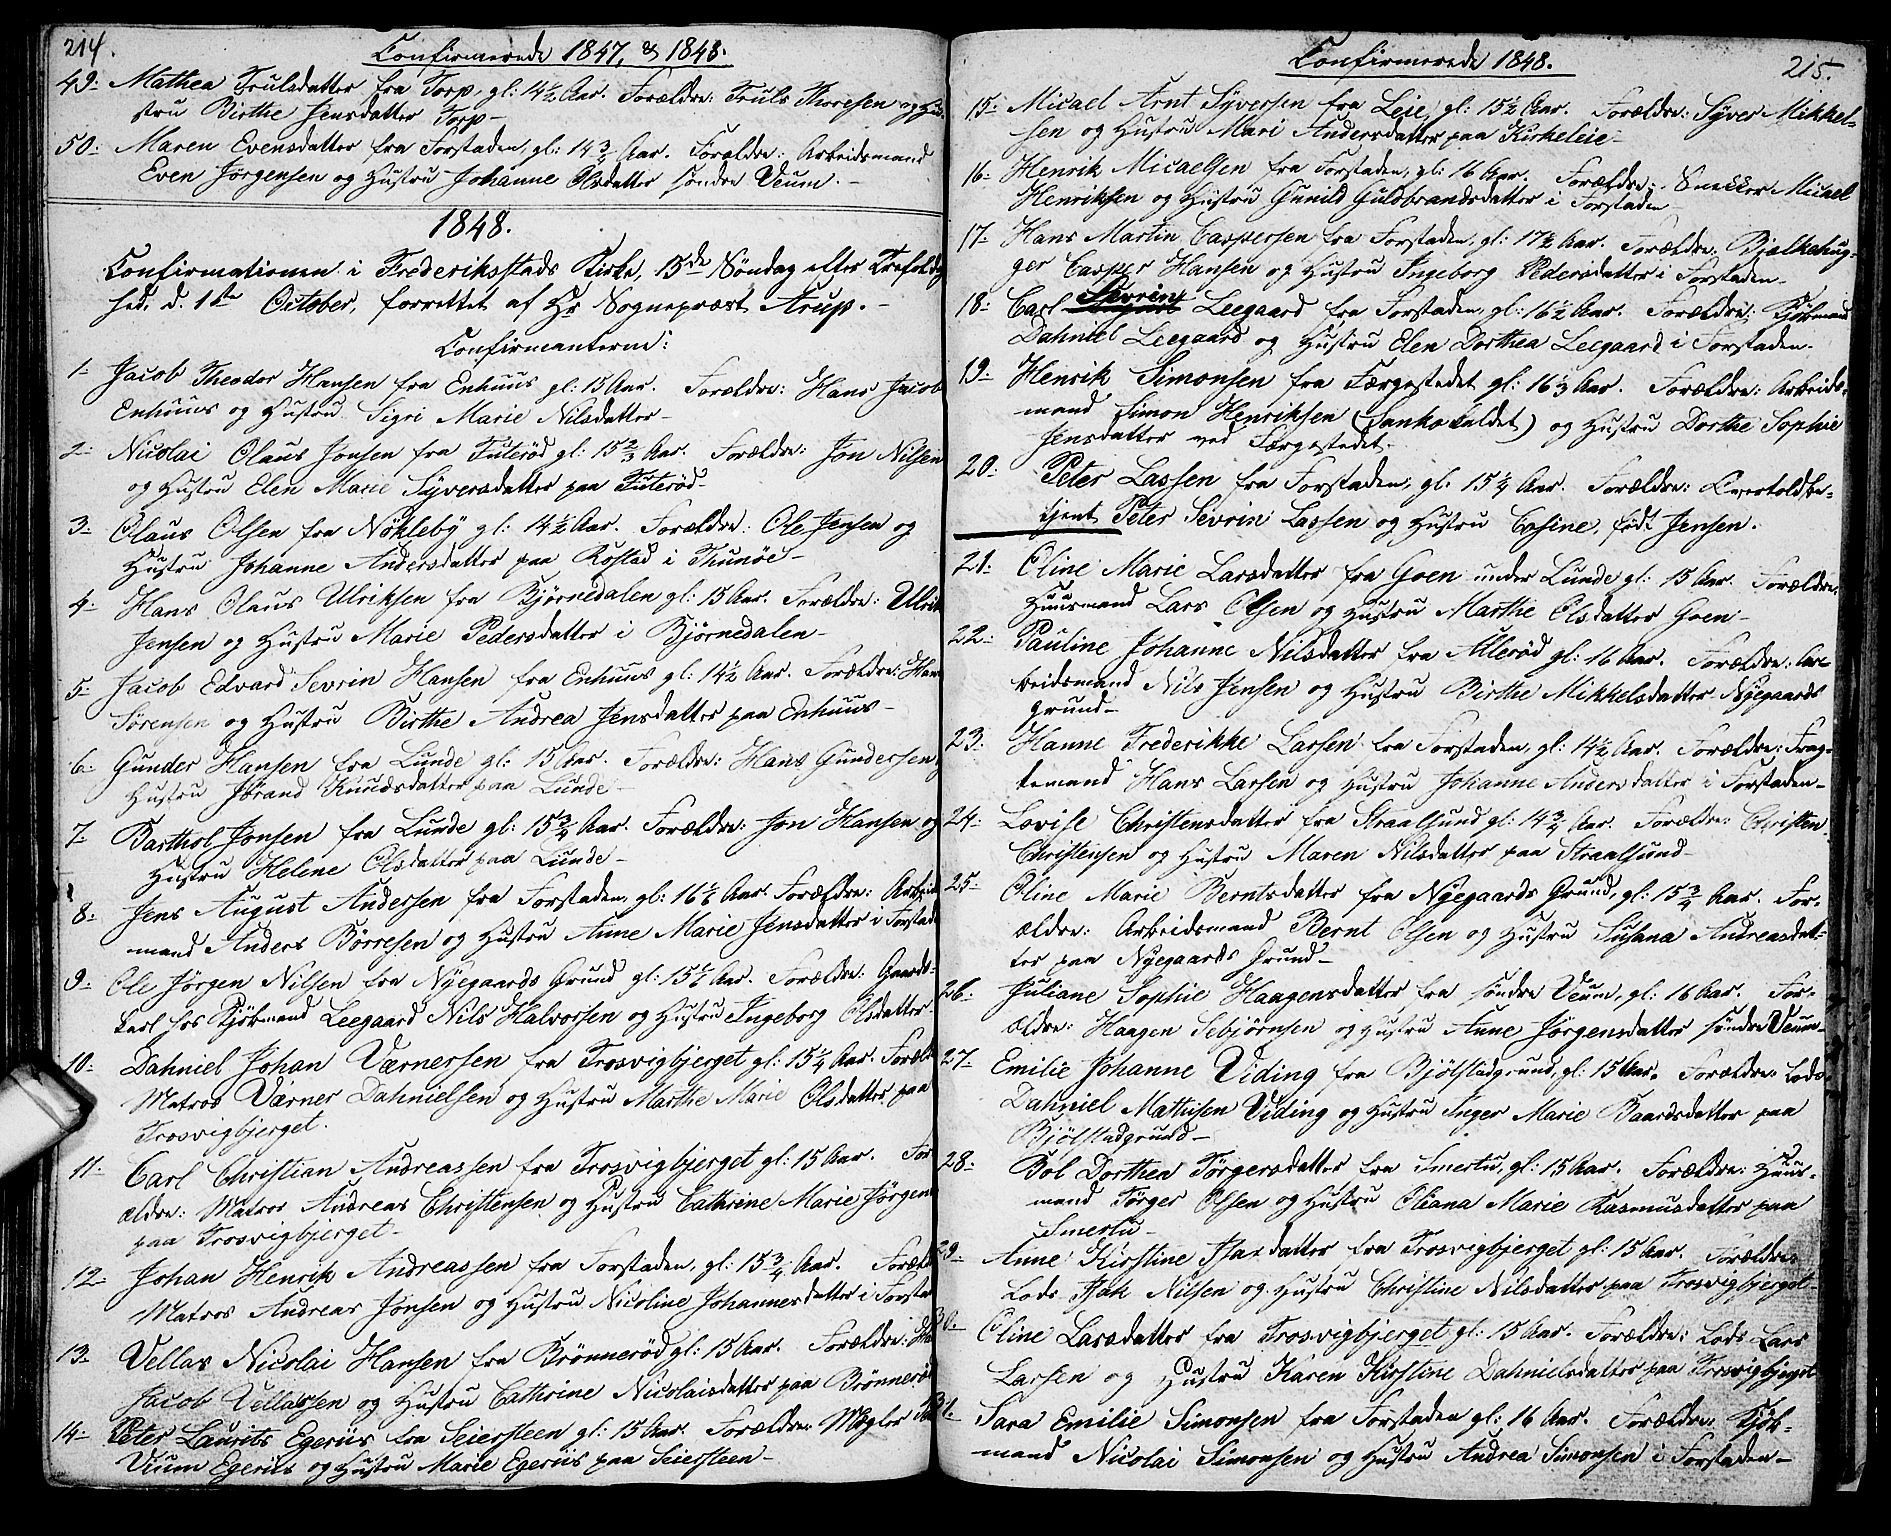 214.
Confirmerede 1847, & 1848.
49. Mathea Trulsdatter fra Torp, gl: 14½ Aar. Forældre: Truls Thoresen og Hu-
stru Birthe Jensdatter Torp-
50. Maren Evensdatter fra Forstaden, gl: 14¾ Aar. Forældre: Arbeidsmand
Even Jörgensen og Hustru Johanne Olsdatter söndre Veum.-
1848.
Confirmationen i Frederiksstads Kirke, 15de Söndag efter Trefoldig
hed. d. 1ste October, forrettet af Hr Sognepræst Arup.-
Confirmanterne:
1. Jacob Theodor Hansen fra Enhuus gl: 15 Aar. Forældre: Hans Jacob
Enhuus og Hustru Sigri Marie Nilsdatter-
2. Nicolai Olaus Jonsen fra Tuteröd gl: 15⅔ Aar. Forældre: Jon Nilsen
og Hustru Elen Marie Syversdatter paa Tuteröd-
3. Olaus Olsen fra Nökleby gl: 14½ Aar. Forældre: Ole Jensen og
Hustru Johanne Andersdatter paa Rostad i Thunöe-
4. Hans Olaus Ulriksen fra Björnedalen gl: 15 Aar. Forældre: Ulrik
Jensen og Hustru Marie Pedersdatter i Björnedalen-
5. Jacob Edvard Sevrin Hansen fra Enhuus gl: 14½ Aar. Forældre: Hans
Sörensen og Hustru Birthe Andrea Jensdatter paa Enhuus-
6. Gunder Hansen fra Lunde gl: 15 Aar. Forældre: Hans Gundersen
Hustru Jörand Knudsdatter paa Lunde-
7. Barthol Jonsen fra Lunde gl: 15¾ Aar. Forældre: Jon Hansen og
Hustru Helene Olsdatter paa Lunde-
8. Jens August Andersen fra Forstaden, gl: 16 Aar. Forældre: Arbeids
mand Anders Börresen og Hustru Anne Marie Jensdatter i Forstad
9. Ole Jörgen Nilsen fra Nyegaards Grund gl: 15 Aar. Forældre: Gaards-
karl hos Kjöbmand Leegaard Nils Halvorsen og Hustru Ingeborg Olsdatter-
10. Dahniel Johan Værnersen fra Trosvigbjerget gl: 15¼ Aar. Foræld
Matros Værner Dahnielsen og Hustru Marthe Marie Olsdatter paa
Trosvigbjerget.
11. Carl Christian Andreassen fra Trosvigbjerget gl: 15 Aar. For
ældre: Matros Andreas Christensen og Hustru Cathrine Marie Jörgens
paa Trosvigbjerget-
12. Johan Henrik Andreassen fra Forstaden, gl: 15¾ Aar. Foræld
Matros Andreas Jonsen og Hustru Nicoline Johannesdatter i Forsta
13. Vellas Nicolai Hansen fra Brönneröd gl: 15 Aar. Forældre: Ha
Jacob Vellassen og Hustru Cathrine Nicolaisdatter paa Brönneröd
14. Peter Laurits Egeriis fra Seiersteen gl: 15 Aar. Forældre: Mægler
Veum Egeriis og Hustru Marie Egeriis paa Seiersteen-
Confirmerede 1848.
215.
15. Micael Arnt Syversen fra Leie, gl: 15½ Aar. Forældre: Syver Mikkel-
sen og Hustru Mari Andersdatter paa Kirkeleie-
16. Henrik Micaelsen fra Forstaden, gl: 16 Aar. Forældre: Snekker Micael
Henriksen og Hustru Gunild Guldbrandsdatter i Forstaden
17. Hans Martin Caspersen fra Forstaden, gl: 17½ Aar. Forældre: Bjelkehug-
ger Casper Hansen og Hustru Ingeborg Pedersdatter i Forstaden.
18. Carl Sevrin Leegaard fra Forstaden, gl: 16½ Aar. Forældre: Kjöbmand
Dahniel Leegaard og Hustru Elen Dorthea Leegaard i Forstaden.
19. Henrik Simonsen fra Færgestedet gl: 16⅓ Aar. Forældre: Arbeids-
mand Simon Henriksen (Sanko kaldet) og Hustru Dorthe Sophie
Jensdatter ved Færgestedet.
20. Peter Lassen fra Forstaden, gl. 15¼ Aar. Forældre: Overtoldbe-
tjent Peter Sevrin Lassen og Hustru Casine, födt Jensen.
21. Oline Marie Larsdatter fra Goen under Lunde gl: 15 Aar. Forældre:
Huusmand Lars Olsen og Hustru Marthe Olsdatter Goen-
22. Pauline Johanne Nilsdatter fra Alleröd gl: 16 Aar. Forældre: Ar-
beidsmand Nils Jensen og Hustru Birthe Mikkelsdatter Nyegaards
grund-
23. Hanne Frederikke Larsen fra Forstaden, gl: 14½ Aar. Forældre: Frag-
temand Hans Larsen og Hustru Johanne Andersdatter i Forstaden-
24. Lovise Christensdatter fra Straalsund gl: 14¾ Aar. Forældre: Christen
Christensen og Hustru Maren Nilsdatter paa Straalsund-
25. Oline Marie Berntsdatter fra Nyegaards Grund, gl: 15¾ Aar. For-
ældre: Arbeidsmand Bernt Olsen og Hustru Susana Andreasdat-
ter paa Nyegaards Grund-
26. Juliane Sophie Haagensdatter fra söndre Veum, gl: 16 Aar. For-
ældre: Haagen Sebjörnsen og Hustru Anne Jörgensdatter söndre Veum-
27. Emilie Johanne Viding fra Bjölstadgrund, gl: 15 Aar. Forældre: Lods
Dahniel Mathisen Viding og Hustru Inger Marie Baardsdatter paa
Bjölstadgrund-
28. Bol Dorthea Törgersdatter fra Smertu, gl: 15 Aar. Forældre: Huus-
mand Törger Olsen og Hustru Oliana Marie Rasmusdatter paa
Smertu-
29. Anne Kirstine Isaxdatter fra Trosvigbjerget gl: 15 Aar. Forældre
Lods Isak Nilsen og Hustru Christine Nilsdatter paa Trosvigbjerget-
30. Oline Larsdatter fra Trosvigbjerget gl: 15 Aar. Forældre: Lods Lars
Larsen og Hustru Karen Kirstine Dahnielsdatter paa Trosvigbjerget
31. Sara Emilie Simonsen fra Forstaden gl: 16 Aar. Forældre: Kjöb-
mand Nicolai Simonsen og Hustru Andrea Simonsen i Forstaden-